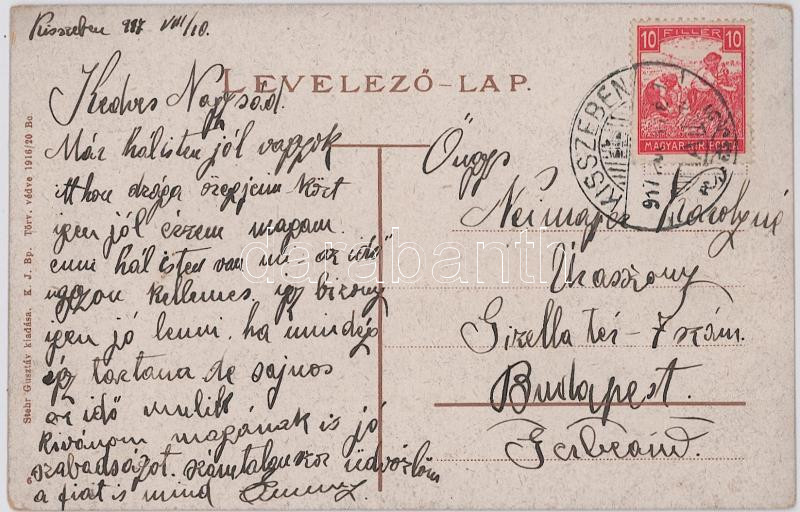 Kisszeben 917 VIII/10.
LEVELEZŐ-LAP.
Kedves Nagysád.
Már hál isten jól vagyok
itthon drága
igen jól érzem magam.
enni hál isten van mi az idő
nagyon kellemes így bizony
igen jó lenni, ha mindég
így tartana de sajnos
az idő mulik
kivánom magának is jó
szabadságot. számtalanszor üdvözlöm
a fiát is mind
Neimajer Károlyné
Úrasszony
Gizella tér - 7 szám.
Budapest.
Gerbeaud.
10 FILLER 10
MAGYAR KIR. POSTA
KISSZEBEN
917
Stehr Gusztáv kiadása. K. J. Bp. Törv. védve 1916/20 Bc.
6
darabanth